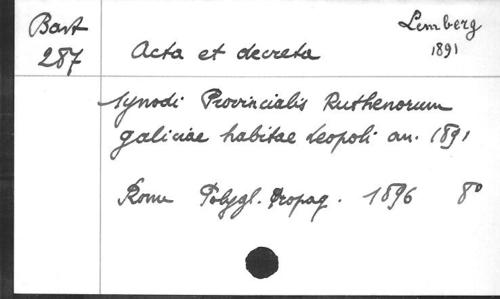 Bast
287
Lemberg
1891
Acta et decreta
synodi Provincialis Ruthenorum
galiciae habitae Leopoli an. 1891
Rome Polygl. Propag. 1896 8°